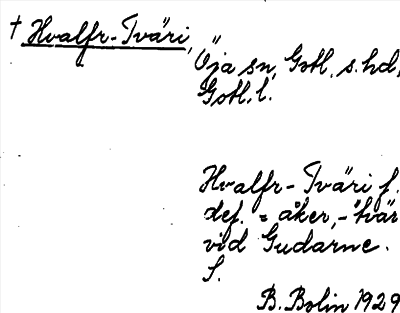 † Hvalfr-Tväri,
Öja sn, Gotl. s. hd,
Gotl. l.
Hvalfr-Tväri f.
def. = åker, -"tvär
vid Gudarne.
S.
B. Bolin 1929